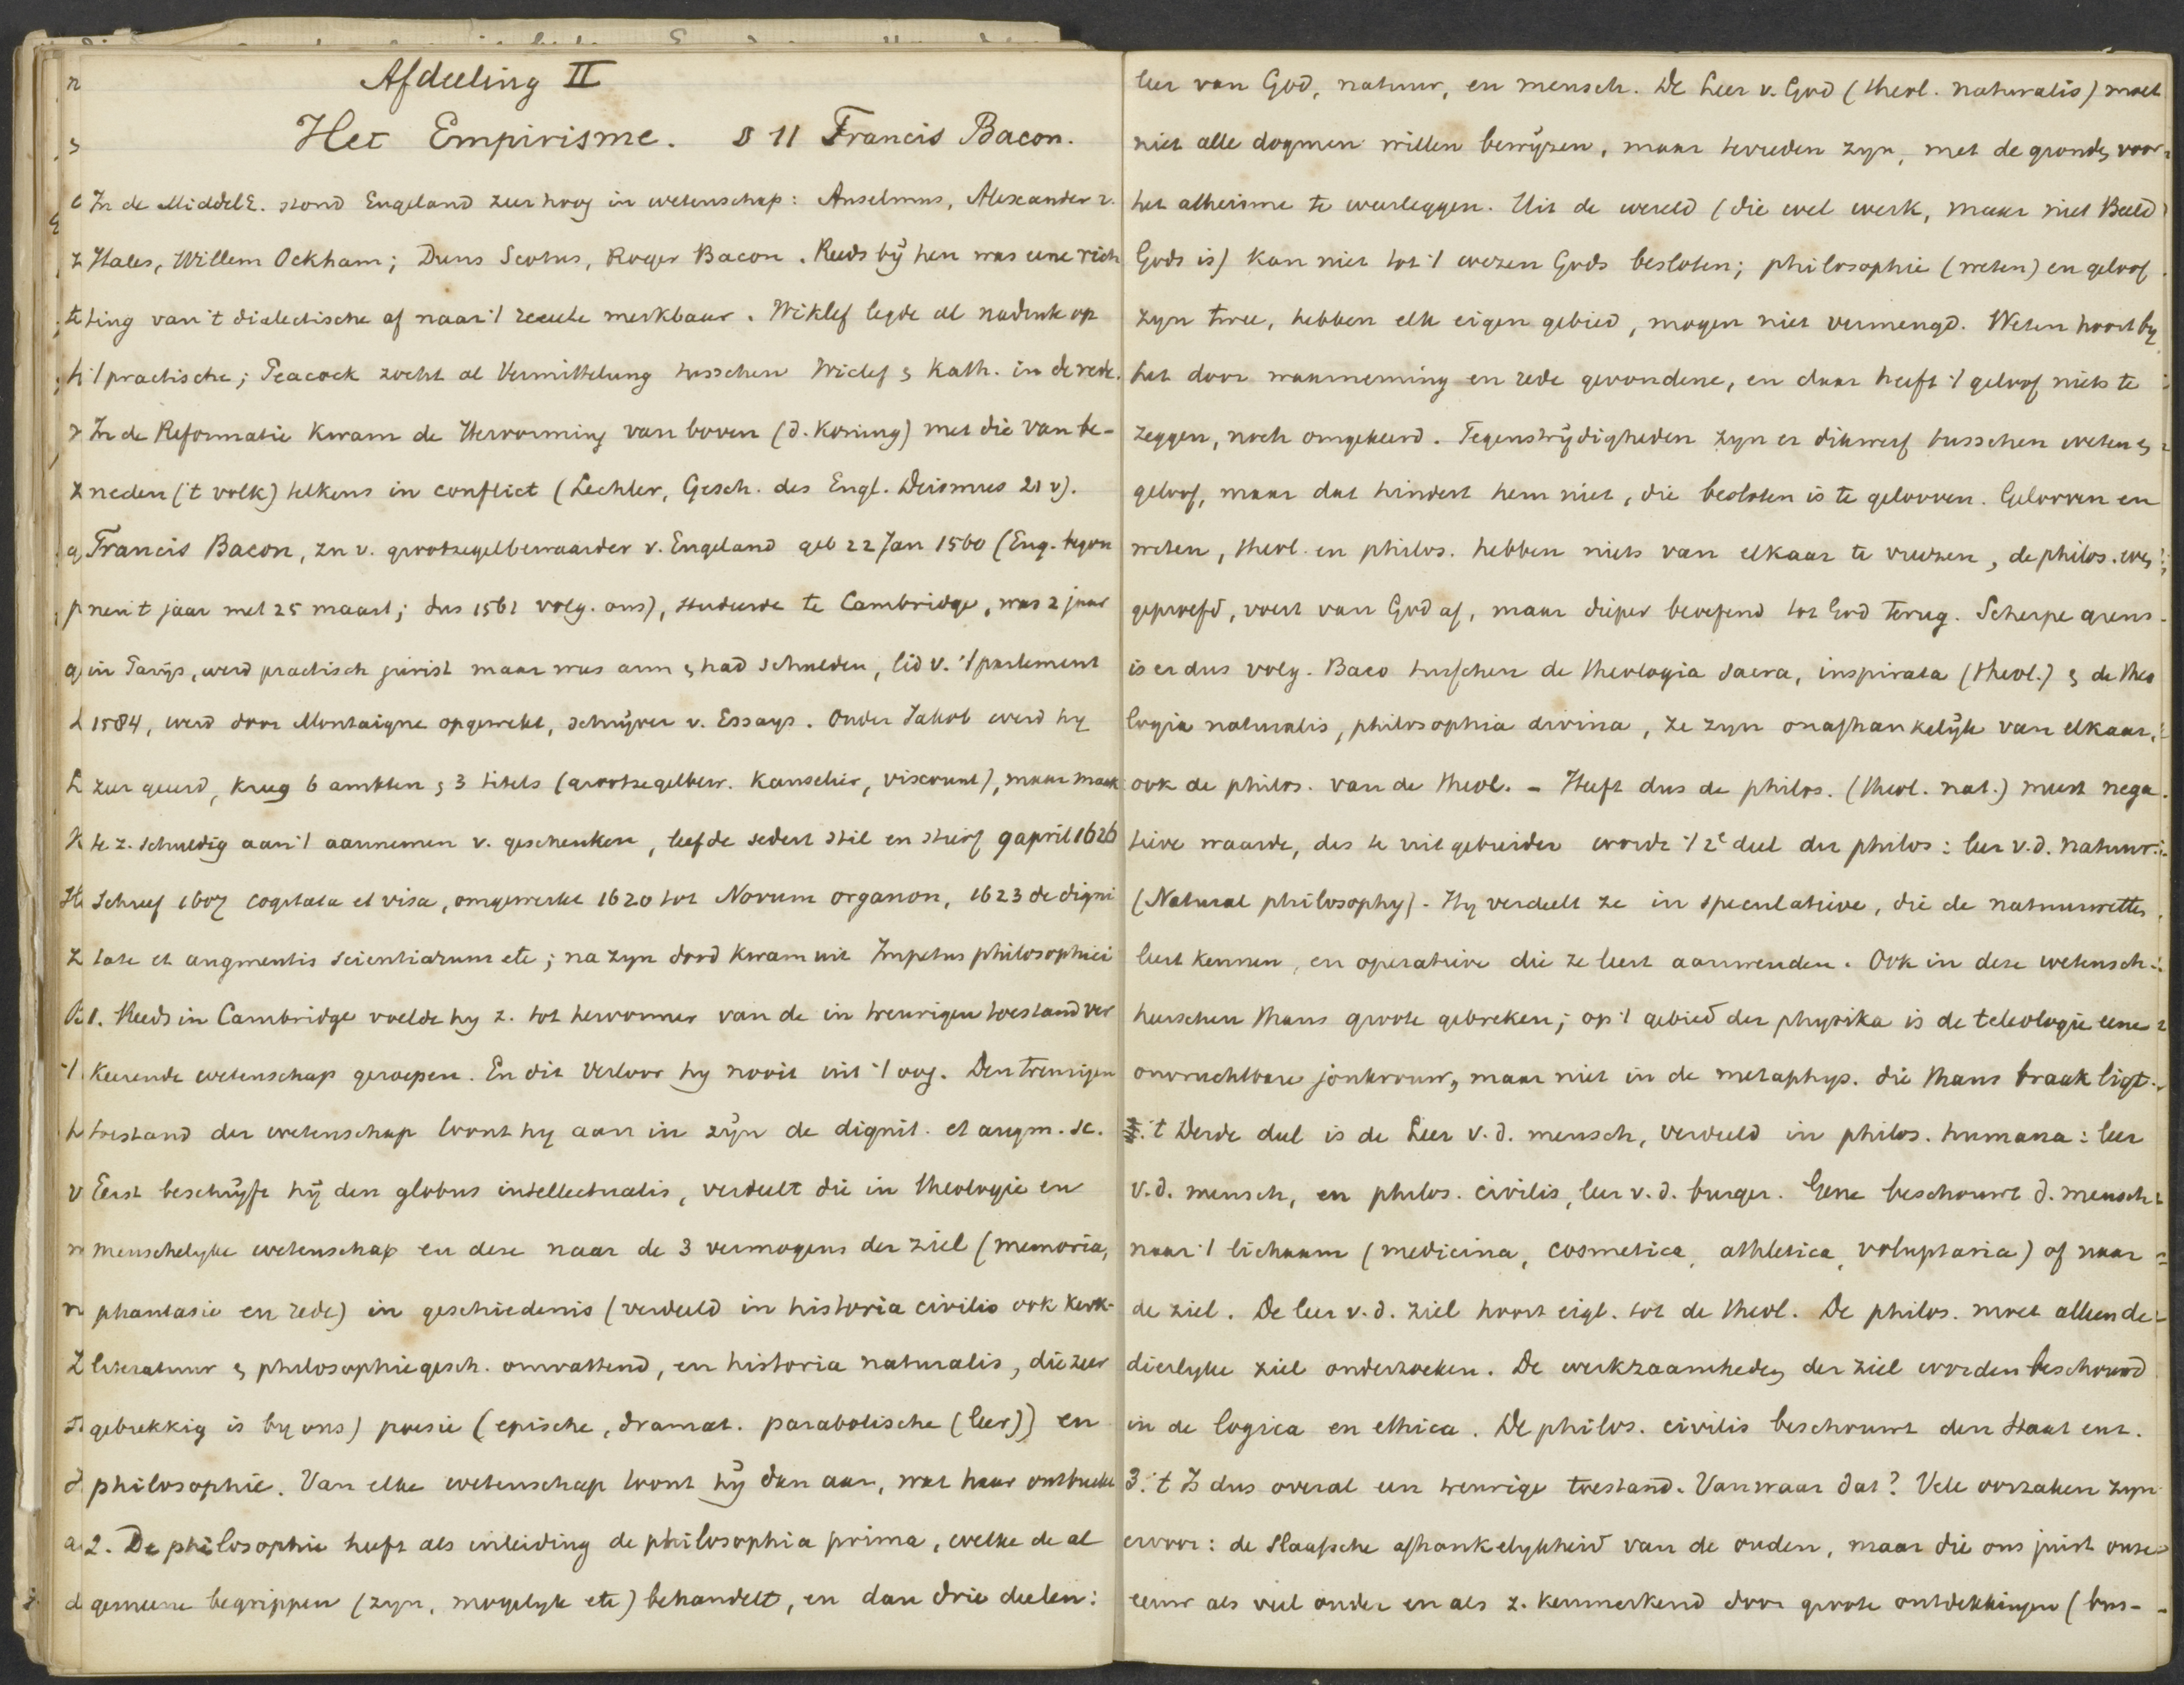 Afdeeling II
Het Empirisme. § 11 Francis Bacon.
In de MiddelE. stond Engeland zeer hoog in wetenschap: Anselmus, Alexander v.
Hales, Willem Ockham; Duns Scotus, Roger Bacon. Reeds bÿ hen was eene rich
ting van 't dialectische af naar 't reeële merkbaar. Wiklef legde al nadruk op
't practische; Peacock zocht al Vermittelung tusschen Wiclef & Kath. in de rede.
In de Reformatie kwam de Hervorming van boven (d. Koning) met die van be-
neden ('t volk) telkens in conflict (Lechler, Gesch. des Engl. Deismus 21 v).
Francis Bacon, zn v. grootzegelbewaarder v. Engeland geb 22 Jan 1560 (Eng. begon
nen 't jaar met 25 maart; dus 1561 volg. ons), studeerde te Cambridge, was 2 jaar
in Parijs, werd practisch jurist maar was arm & had schulden, lid v. 't parlement
1584, werd door Montaigne opgewekt, schrÿver v. Essays. Onder Jakob werd hy
zeer geeerd, kreeg 6 ambten & 3 titels (grootzegelbew. Kanselier, viscount), maar maak
te z. schuldig aan 't aannemen v. geschenken, leefde sedert stil en stierf 9 april 1626
Schreef 1607 cogitata et visa, omgewerkt 1620 tot Novum organon, 1623 de digni
tate et augmentis scientiarum etc; na zyn dood kwam uit Impetus philosophici
1. Reeds in Cambridge voelde hy z. tot hervormer van de in treurigen toestand ver
keerende wetenschap geroepen. En dit verloor hy nooit uit 't oog. Den treurigen
toestand der wetenschap toont hy aan in zÿn de dignit. et augm. sc.
Eerst beschrÿft hÿ den globus intellectualis, verdeelt die in theologie en
menschelyke wetenschap en deze naar de 3 vermogens der ziel (memoria,
phantasie en rede) in geschiedenis (verdeeld in historia civilis ook kerk-
literatuur & philosophiegesch. omvattend, en historia naturalis, die zeer
gebrekkig is by ons) poesie (epische, dramat. parabolische (leer)) en
philosophie. Van elke wetenschap toont hÿ dan aan, wat haar ontbreekt
2. De philosophie heeft als inleiding de philosophia prima, welke de al
gemeene begrippen (zyn, mogelyk etc) behandelt, en dan drie deelen:
leer van God, natuur, en mensch. De Leer v. God (theol. naturalis) moet
niet alle dogmen willen bewÿzen, maar tevreden zyn, met de gronden voor
het atheisme te weerleggen. Uit de wereld (die wel werk, maar niet Beeld
Gods is) kan niet tot 't wezen Gods besloten; philosophie (weten) en geloof
zyn twee, hebben elk eigen gebied, mogen niet vermengd. Weten hoort by
het door waarneming en rede gevondene, en daar heeft 't geloof niets te
zeggen, noch omgekeerd. Tegenstrÿdigheden zyn er dikwerf tusschen weten &
geloof, maar dat hindert hem niet, die besloten is te gelooven. Gelooven en
weten, theol. en philos. hebben niets van elkaar te vreezen, de philos. even
geproefd, voert van God af, maar dieper beoefend tot God terug. Scherpe grens
is er dus volg. Baco tusschen de theologia sacra, inspirata (theol.) & de theo
logia naturalis, philosophia divina, ze zyn onafhankelÿk van elkaar,
ook de philos. van de theol. - Heeft dus de philos. (theol. nat.) meest nega
tieve waarde, des te uitgebreider wordt 't 2e deel der philos: leer v.d. natuur
(Natural philosophy). Hy verdeelt ze in speculatieve, die de natuurwetten
leert kennen, en operatieve die ze leert aanwenden. Ook in deze wetensch.
heerschen thans groote gebreken; op 't gebied der physika is de teleologie eene
onvruchtbare jonkvrouw, maar niet in de metaphys. die thans braak ligt.
't Derde deel is de Leer v. d. mensch, verdeeld in philos. humana: leer
v. d. mensch, en philos. civilis, leer v. d. burger. Gene beschouwt d. mensch
naar 't lichaam (medicina, cosmetica, athletica, voluptaria) of naar
de ziel. De leer v. d. ziel hoort eigl. tot de theol. De philos. moet alleen de
dierlyke ziel onderzoeken. De werkzaamheden der ziel worden beschouwd
in de logica en ethica. De philos. civilis beschouwt den staat enz.
3. 't Is dus overal een treurige toestand. Vanwaar dat? Vele oorzaken zyn
ervoor: de slaafsche afhankelykheid van de ouden, maar die ons juist onze
eeuw als veel ouder en als z. kenmerkend door groote ontdekkingen (bus-